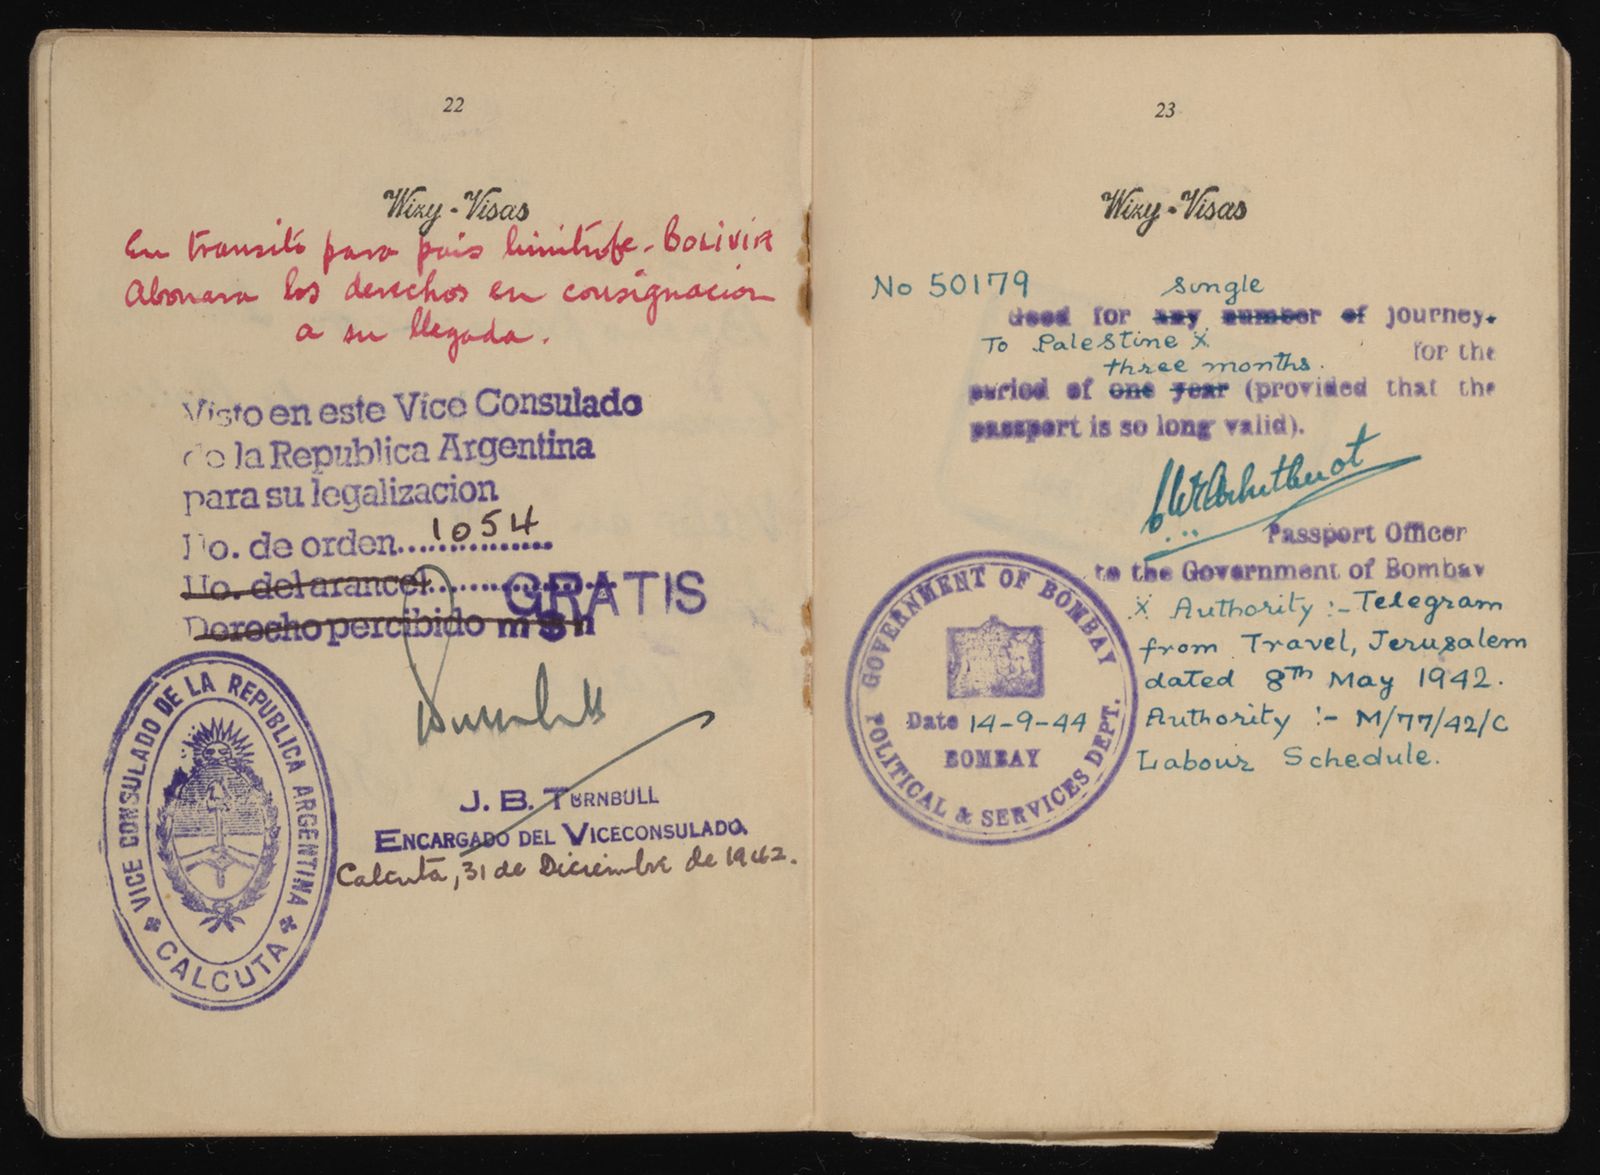 22
Wizy-Visas
En transito para pais limitrofe - BOLIVIA
Abonara los derechos en consignacion
a su llegada.
Visto en este Vice Consulado
de la Republica Argentina
para su legalizacion
No. de orden....1054
No. del arancel.............. GRATIS
Derecho percibido m$n
VICE CONSULADO DE LA REPUBLICA ARGENTINA
CALCUTA
J. B. TURNBULL
ENCARGADO DEL VICECONSULADO.
Calcuta, 31 de Diciembre de 1942.
23
Wizy-Visas
No 50179 Single
Good for any number of journey.
To Palestine X for the
three months.
period of one year (provided that the
passport is so long valid).
Passport Officer
to the Government of Bombay
GOVERNMENT OF BOMBAY
Date 14-9-44
BOMBAY
POLITICAL & SERVICES DEPT.
X Authority :- Telegram
from Travel, Jerusalem
dated 8th May 1942.
Authority :- M/77/42/C
Labour Schedule.